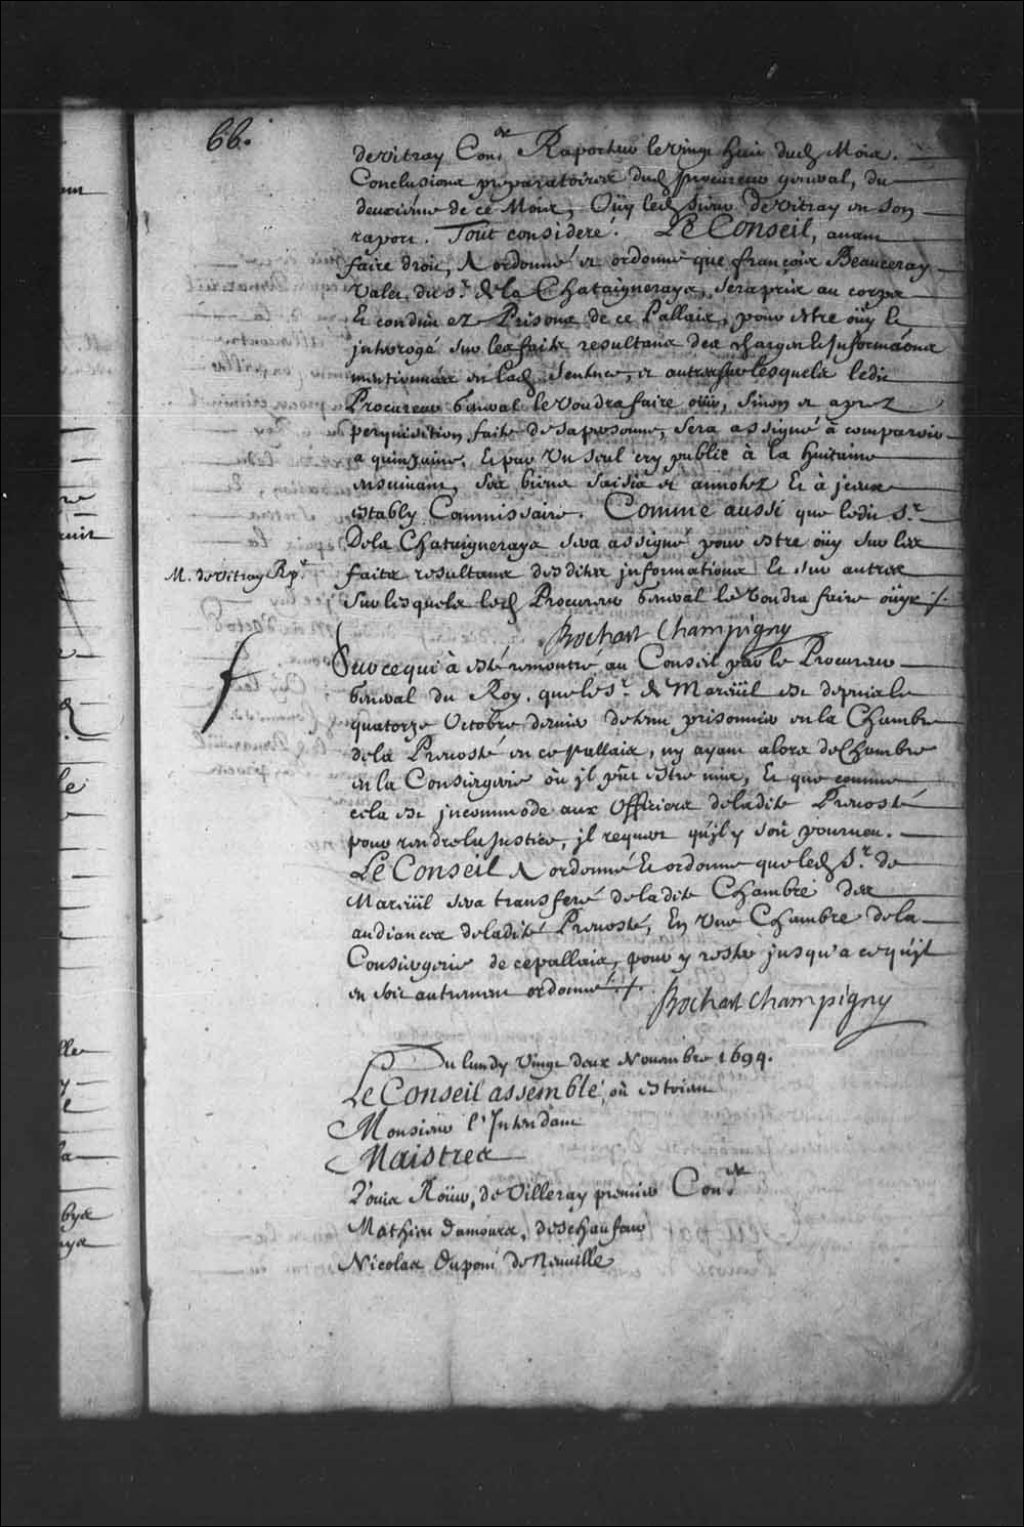 66.
deVitray Con.er Raporteur le vingt huit dud. Mois.
Conclusions preparatoires dud. procureur general, du
deuxiéme de ce Mois, Oüy led. Sieur deVitray en son
raport. Tout consideré. Le Conseil, avant
faire droit, A ordonné et ordonne que françois Beauceray
Valet du s.r de la Chataigneraye, sera pris au corps
Et conduit ez Prisons de ce Pallais, pour estre oüy Et
interogé sur les faits resultans des charges Et Informãons
mentionnées en lad. Sentence, et autres sur lesquels ledit
Procureur General le voudra faire oüir, sinon et aprez
perquisition faite de sa personne, sera assigné à comparoir
a quinzaine, Et par Un seul cry public à la huitaine
ensuivant, ses biens saisis et annotez Et à iceux
estably Commissaire. Comme aussi que ledit S.r
De la Chataigneraye sera assigné pour estre oüy sur les
M. deVitray Rp.r
faits resultans desdites informations Et sur autres
sur lesquels led. Procureur General le voudra faire oüyr ./.
Bochart Champigny
Sur ce qui à esté remontré au Conseil par le Procureur
General du Roy, que le s.r de Mareüil est depuis le
quatorze Octobre dernier detenu prisonnier en la Chambre
de la Prevosté en ce pallais, ny ayant alors de Chambre
en la Conciergerie où il pût estre mis, Et que comme
cela est incommode aux Officiers de ladite Prevosté
pour rendre la Justice, il requert qu'il y soit pourveu.
Le Conseil A ordonné Et ordonne que led. S.r de
Mareüil sera transferé de ladite Chambre des
audiances de ladite Prevosté, En Une Chambre de la
Conciergerie de ce pallais, pour y rester jusqu'a ce qu'il
en soit autrement ordonné ./.
Bochart Champigny
Du lundy Vingt deux Novembre 1694.
Le Conseil assemblé, où estoient
Monsieur l'Intendant
Maistres
Loüis Roüer, de Villeray premier Con.er
Mathieu Damours, deschaufour
Nicolas Dupont de Neuville